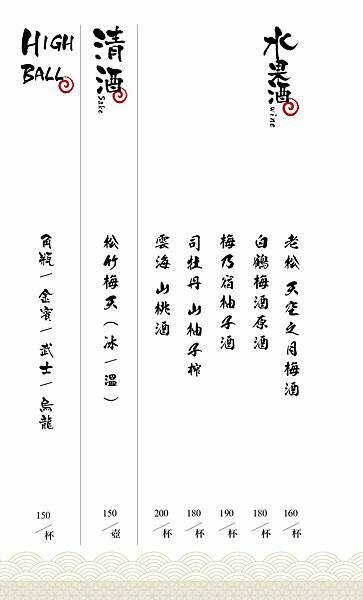 水果酒
wine
老松 天空之月梅酒 160/杯
白鶴梅酒原酒 180/杯
梅乃宿柚子酒 190/杯
司牡丹 山柚子搾 180/杯
雲海 山桃酒 200/杯
清酒
Sake
松竹梅天(冰/溫) 150/壺
HIGH
BALL
角瓶/金賓/武士/烏龍 150/杯